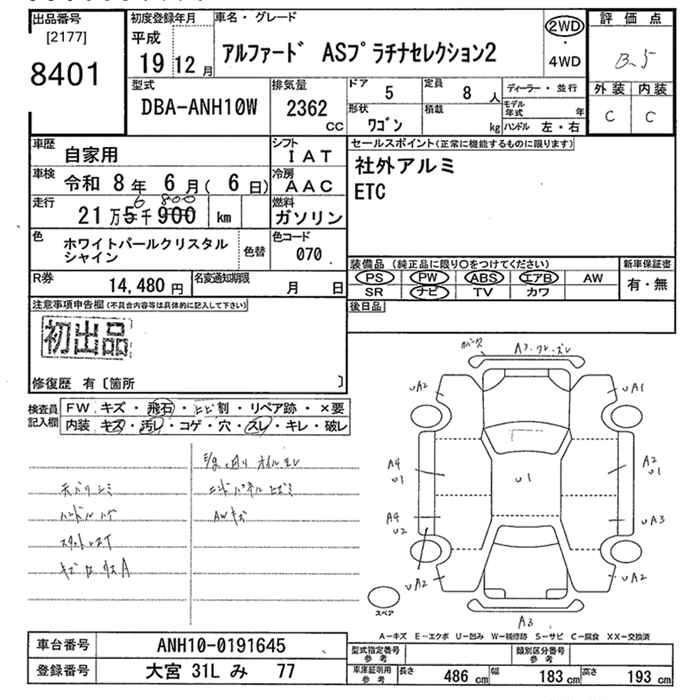 出品番号
[2177]
8401
初度登録年月
平成
19 12月
車名・グレード
アルファード ASプラチナセレクション2
2WD
・
4WD
評価点
B.5
外装 内装
C C
型式
DBA-ANH10W
排気量
2362
CC
ドア
5
定員
8人
形状
ワゴン
積載
kg
ディーラー・並行
モデル年式 年
ハンドル 左・右
車歴
自家用
シフト
IAT
車検
令和 8年 6月(6日)
冷房
AAC
走行
6 800
21万5千900 km
燃料
ガソリン
色
ホワイトパールクリスタル
シャイン
色替
色コード
070
R券
14,480円
名変通知期限
月 日
セールスポイント(正常に機能するものに限ります)
社外アルミ
ETC
装備品 (純正品に限り○をつけてください)
PS PW ABS エアB AW
SR ナビ TV カワ
新車保証書
有・無
後日品
注意事項申告欄(不具合内容等は具体的に記入して下さい)
初出品
修復歴 有〔箇所 〕
検査員
記入欄
FW キズ・飛石・ヒビ割・リペア跡・×要
内装 キズ・汚レ・コゲ・穴・スレ・キレ・破レ
天バリシミ
ハンドルハゲ
AWキズ
A3
UA2
UA1
A4
U1
U1
A2
U1
A4
U2
A3
UA2
UA2
A3
スペア
A-キズ E-エクボ U-凹み W-補修跡 S-サビ C-腐食 XX-交換済
車台番号
ANH10-0191645
登録番号
大宮 31L み 77
型式指定番号
参考
類別区分番号
参考
車庫証明用
参考
長さ 486cm 幅 183cm 高さ 193cm